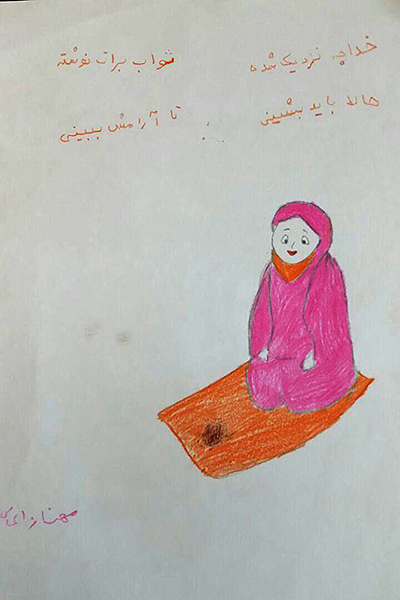 خدا چه نزدیک شده ثواب برات نوشته
حالا باید بشینی تا آرامش ببینی
مهناز